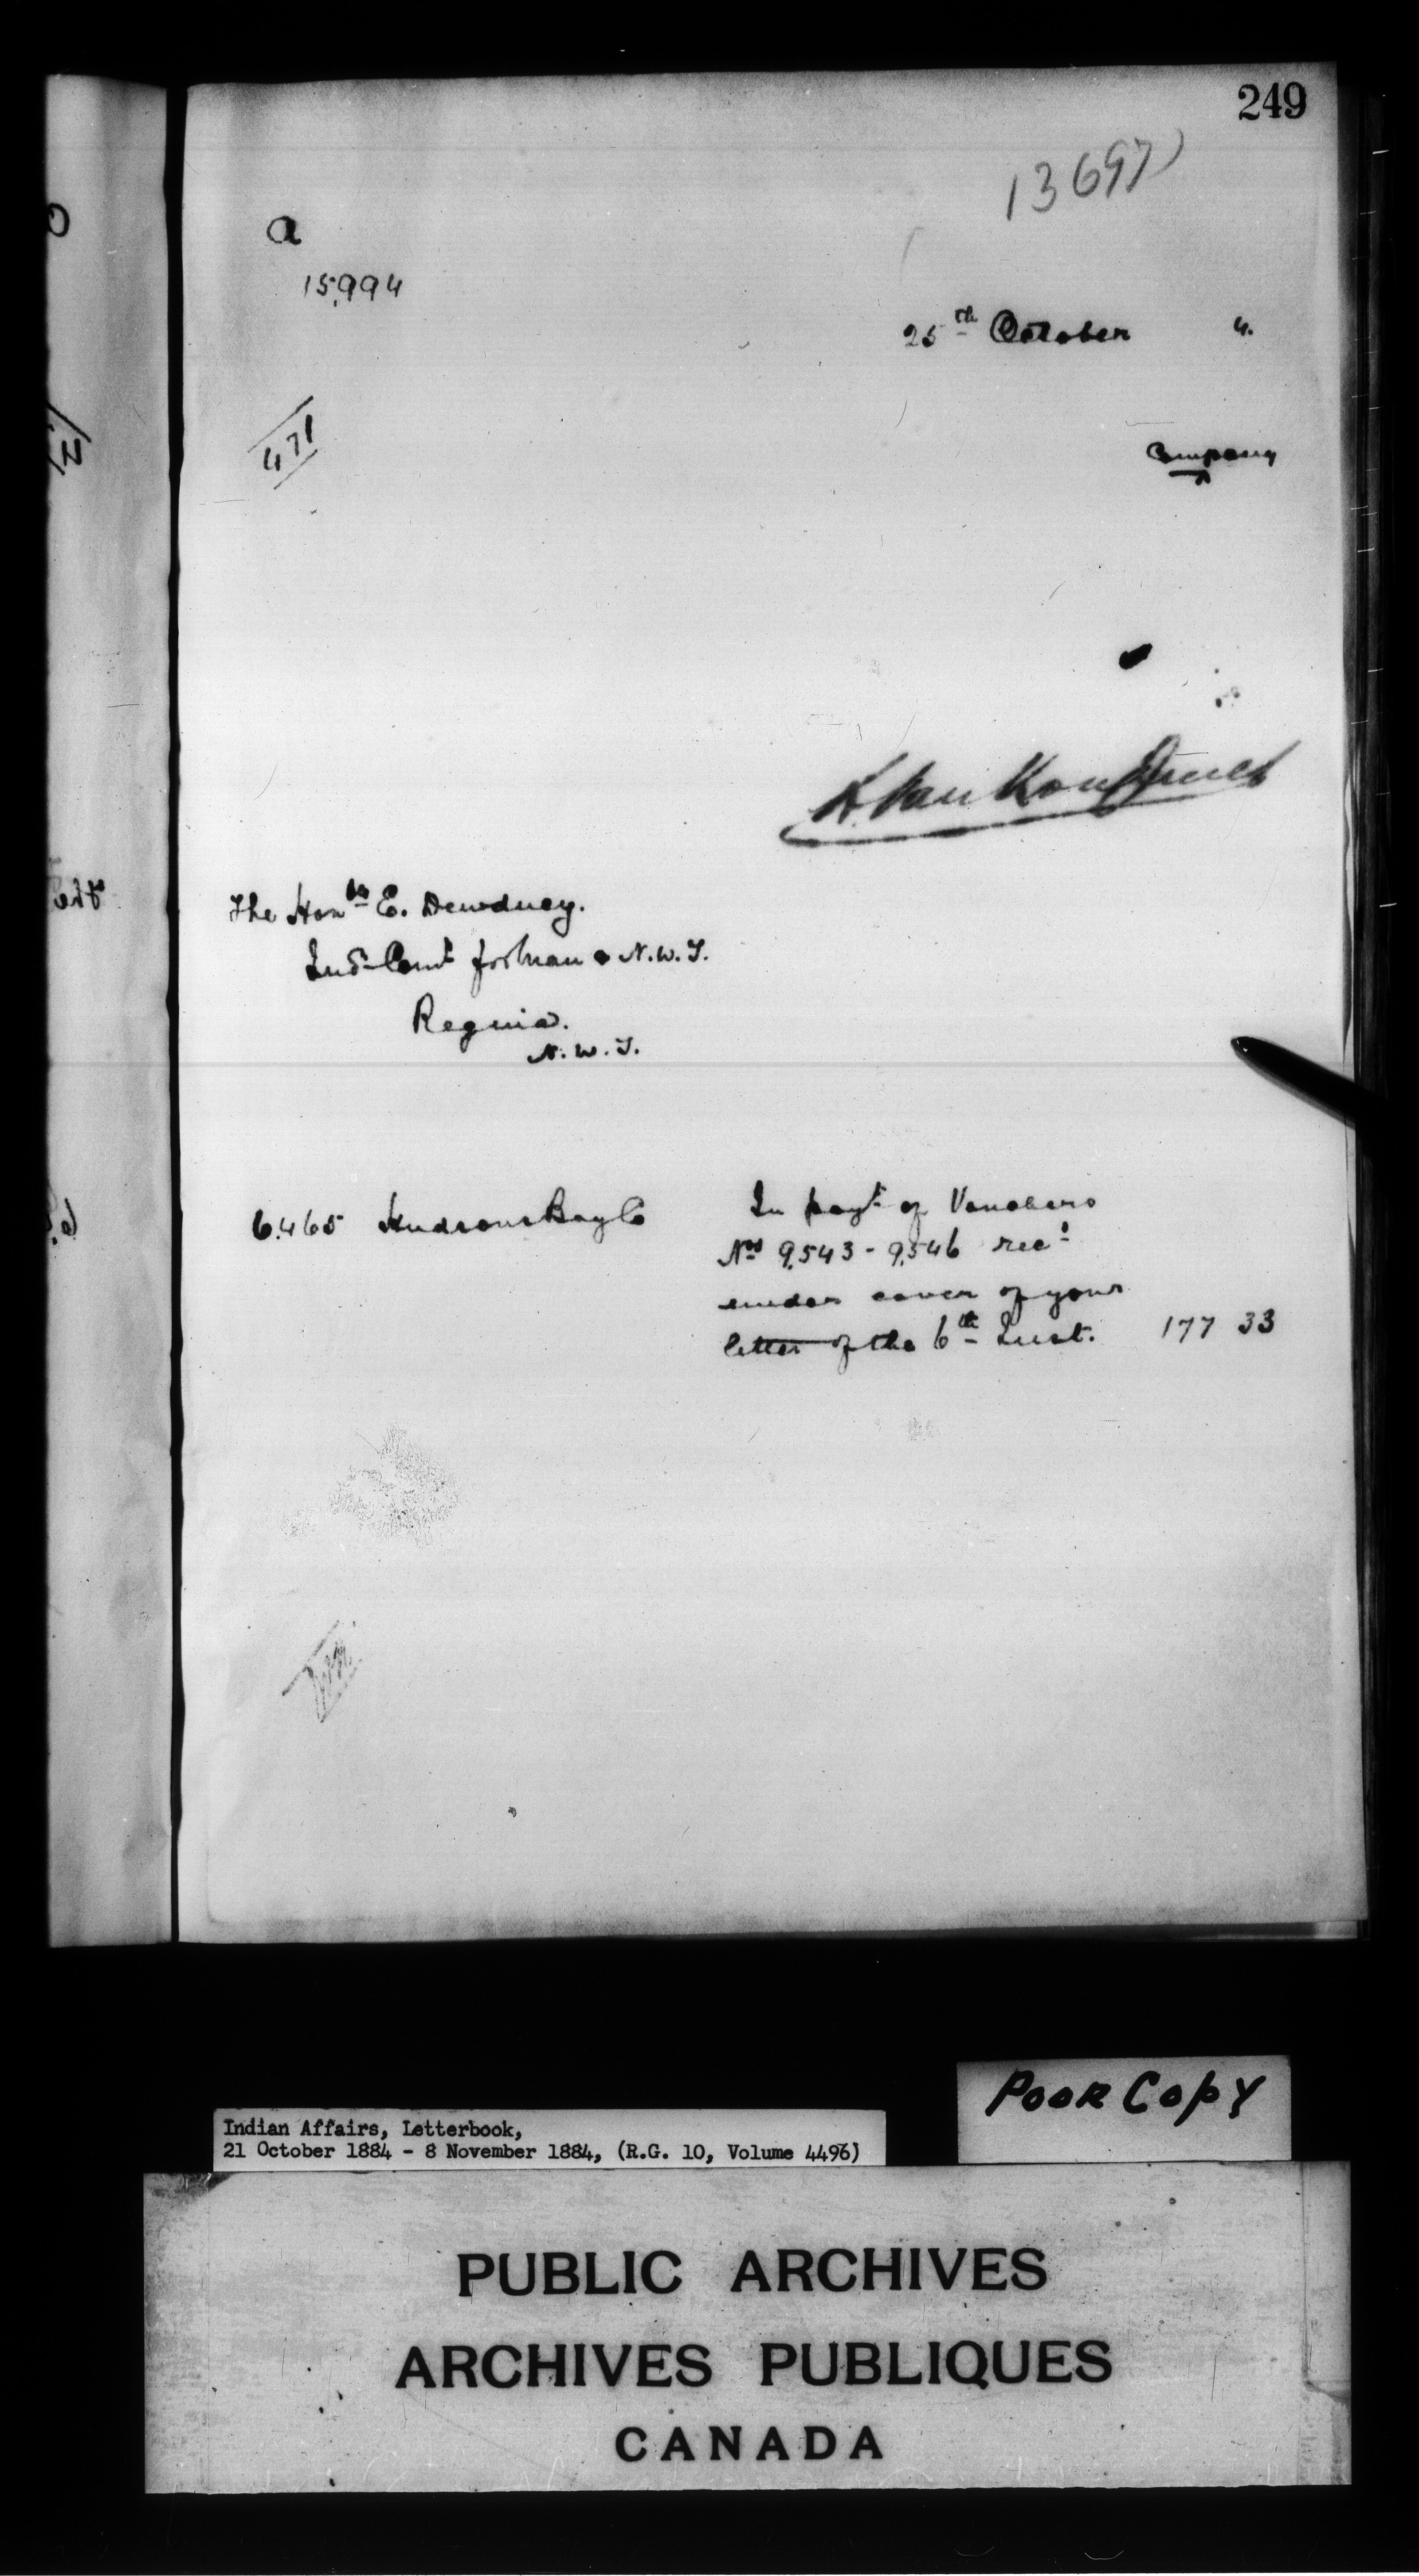 249
13697
a
15,994
25th October 4.
471
Company
L. VanKoughnet
The Honble E. Dewdney.
Ind. Comr for Man & N.W.T.
Regina.
N.W.T.
6.465 Hudsons Bay Co In payt of Vouchers
Nos 9,543 - 9,546 recd
under cover of your
letter of the 6th Inst. 177 33
POOR COPY
Indian Affairs, Letterbook,
21 October 1884 - 8 November 1884, (R.G. 10, Volume 4496)
PUBLIC ARCHIVES
ARCHIVES PUBLIQUES
CANADA